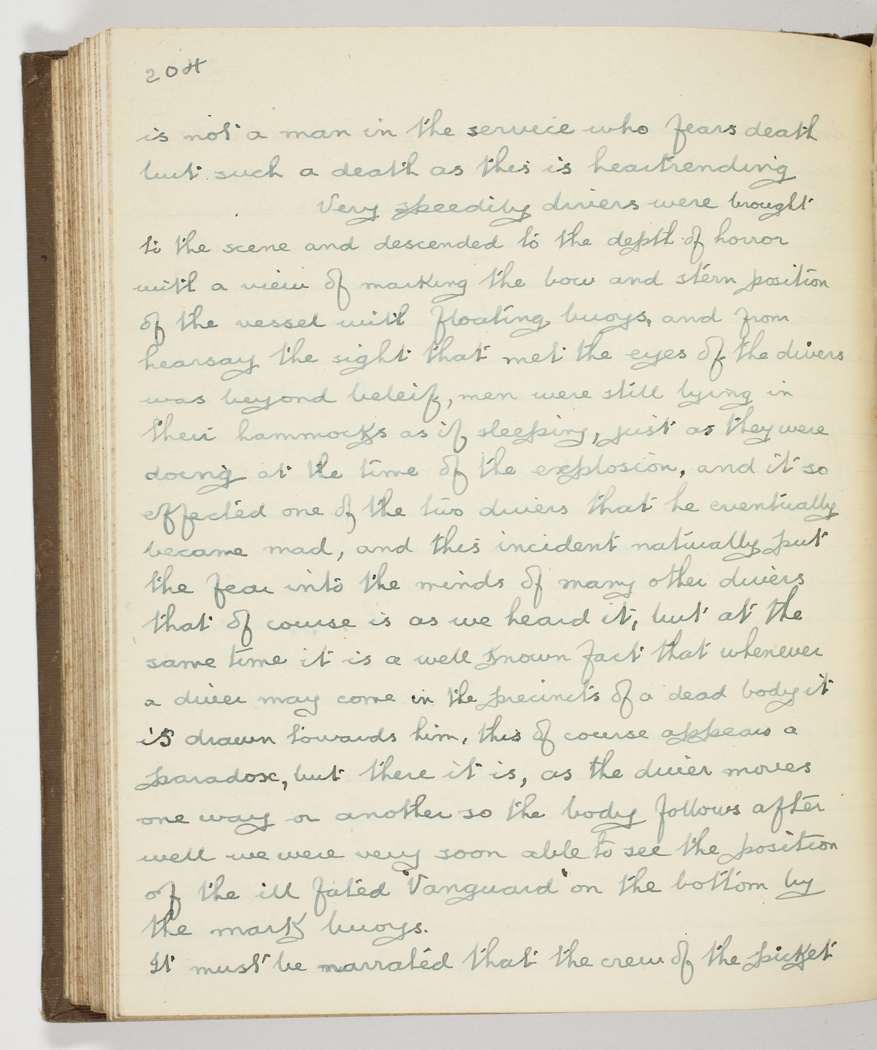 204
is not a man in the service who fears death
but such a death as this is heartrending
Very speedily divers were brought
to the scene and descended to the depth of horror
with a view of marking the bow and stern position
of the vessel with floating buoys, and from
hearsay the sight that met the eyes of the divers
was beyond beleif, men were still lying in
their hammocks as if sleeping, just as they were
doing at the time of the explosion, and it so
effected one of the two divers that he eventually
became mad, and this incident naturally put
the fear into the minds of many other divers
that of course is as we heard it, but at the
same time it is a well known fact that whenever
a diver may come in the precincts of a dead body it
is drawn towards him, this of course appears a
paradox, but there it is, as the diver moves
one way or another so the body follows after
well we were very soon able to see the position
of the ill fated "Vanguard" on the bottom by
the mark buoys.
It must be narrated that the crew of the picket